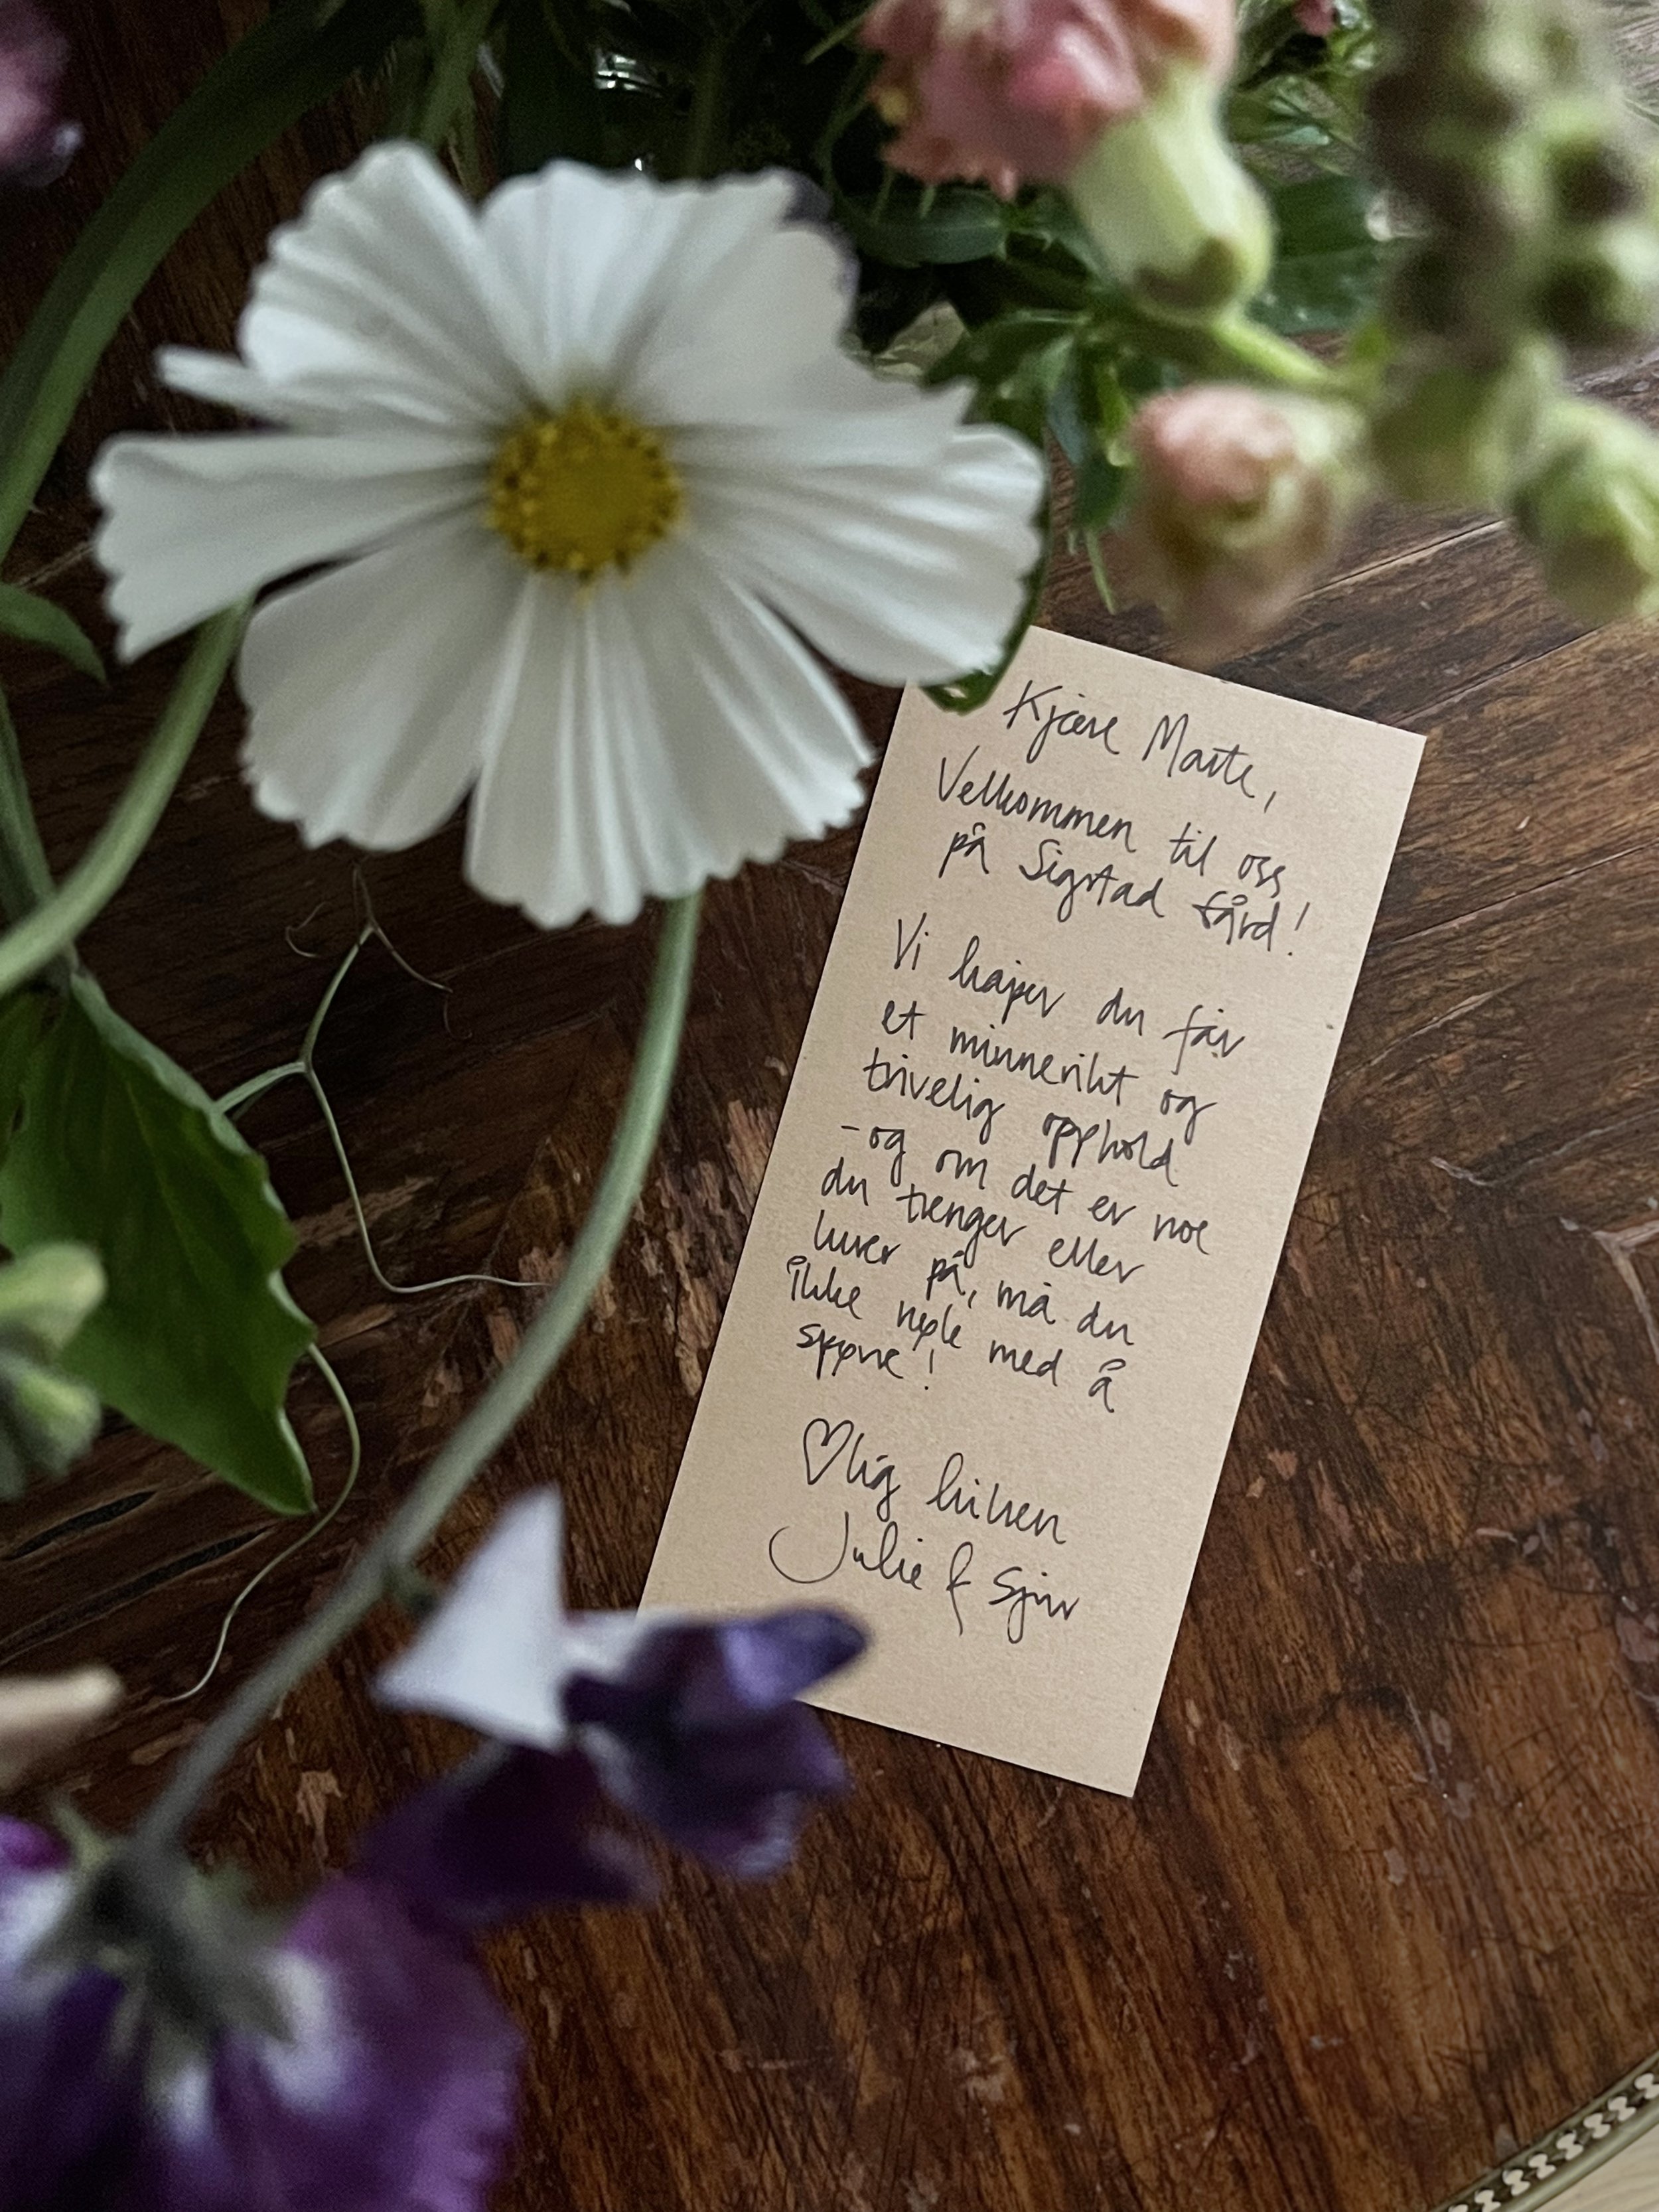 Kjære Marte,
Velkommen til oss
på Sigstad Gård!
Vi håper du får
et minnerikt og
trivelig opphold
- og om det er noe
du trenger eller
lurer på, må du
ikke nøle med å
spørre!
♡lig hilsen
Julie &